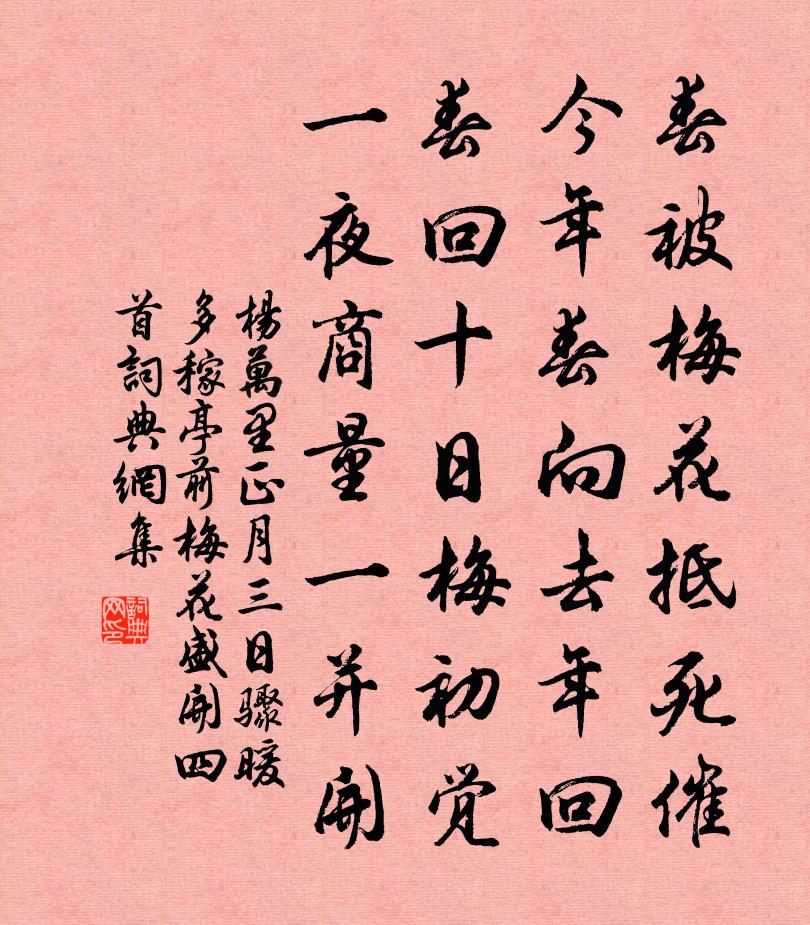 春被梅花抵死催
今年春向去年回
春回十日梅初觉
一夜商量一并開
楊萬里正月三日驟暖
多稼亭前梅花盛開四
首詞典網集
詞典
网印